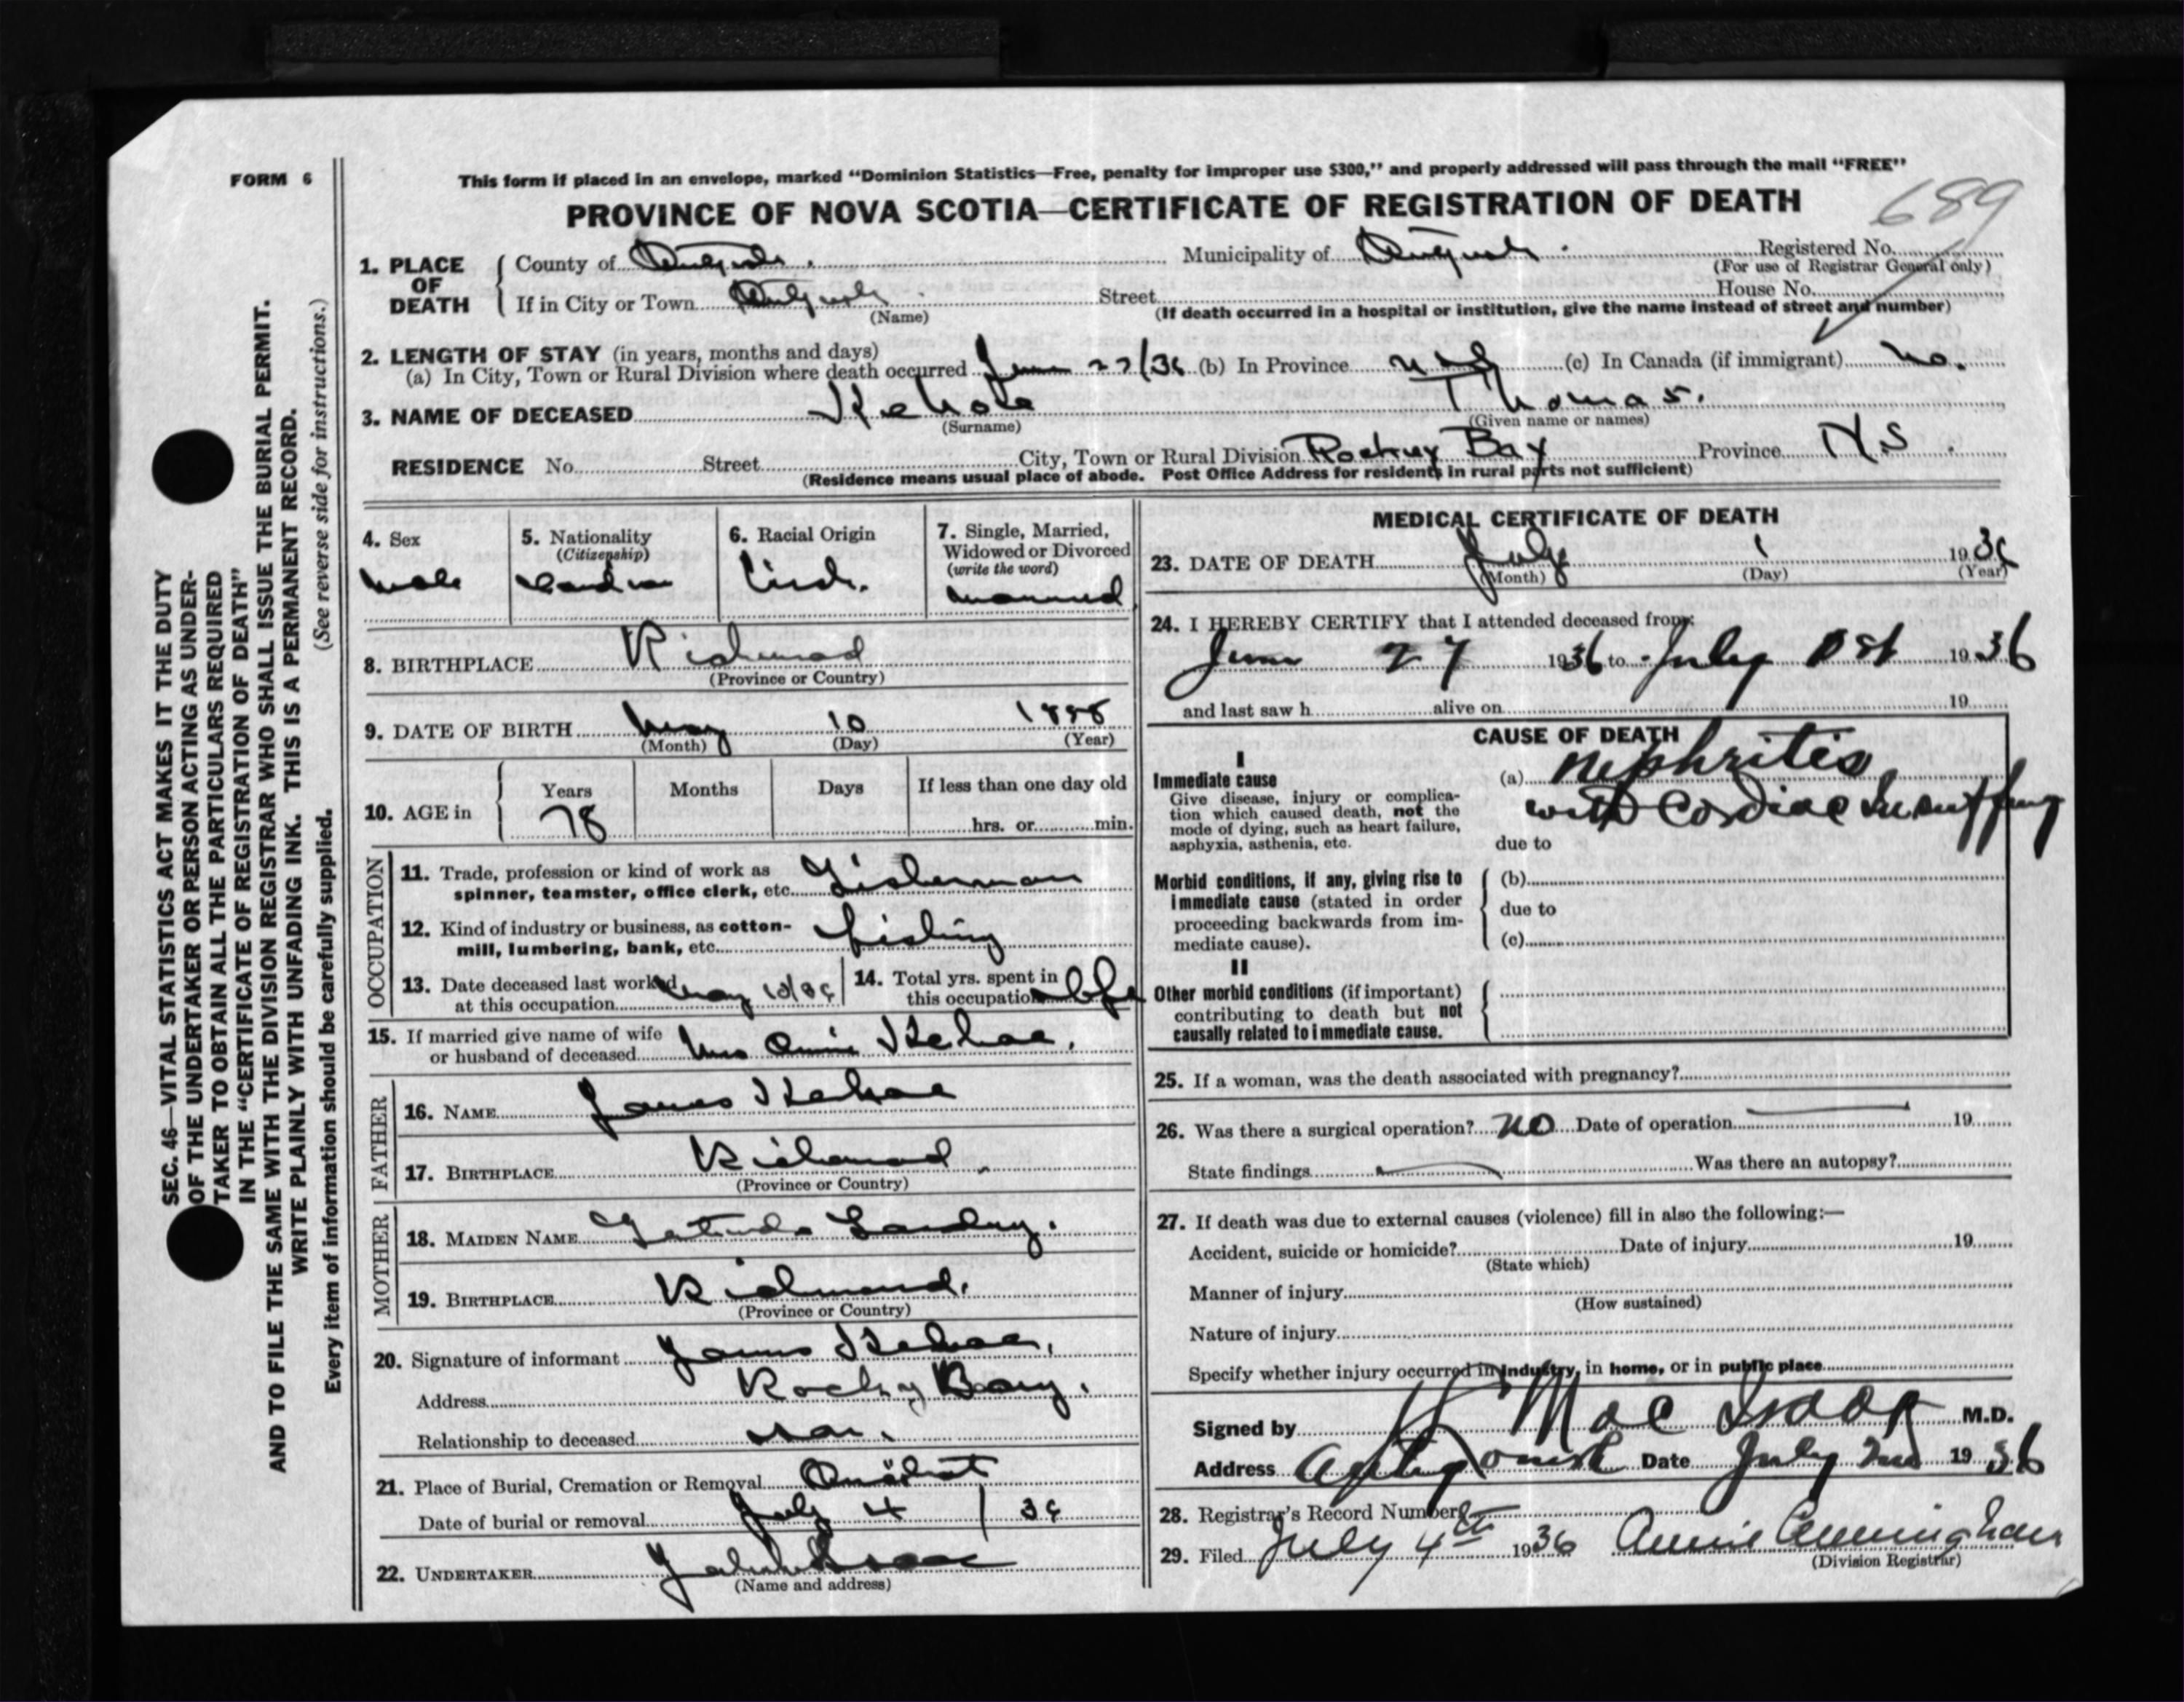 FORM 6
This form if placed in an envelope, marked "Dominion Statistics—Free, penalty for improper use $300," and properly addressed will pass through the mail "FREE"
PROVINCE OF NOVA SCOTIA—CERTIFICATE OF REGISTRATION OF DEATH
689
1. PLACE OF DEATH
County of Antigonish. Municipality of Antigonish. Registered No.
(For use of Registrar General only)
If in City or Town Antigonish. Street House No.
(Name) (If death occurred in a hospital or institution, give the name instead of street and number)
2. LENGTH OF STAY (in years, months and days)
(a) In City, Town or Rural Division where death occurred June 27/36 (b) In Province (c) In Canada (if immigrant) no.
3. NAME OF DECEASED Kehoe Thomas.
(Surname) (Given name or names)
RESIDENCE No. Street City, Town or Rural Division Rocky Bay Province N.S.
(Residence means usual place of abode. Post Office Address for residents in rural parts not sufficient)
4. Sex male
5. Nationality (Citizenship) Canadian
6. Racial Origin Irish.
7. Single, Married, Widowed or Divorced (write the word) married
8. BIRTHPLACE Richmond
(Province or Country)
9. DATE OF BIRTH May 10
(Month) (Day) (Year)
10. AGE in Years 78 Months Days If less than one day old
hrs. or min.
OCCUPATION
11. Trade, profession or kind of work as spinner, teamster, office clerk, etc. Fisherman
12. Kind of industry or business, as cotton-mill, lumbering, bank, etc. fishing
13. Date deceased last worked at this occupation May 14. Total yrs. spent in this occupation life
15. If married give name of wife or husband of deceased Mrs Annie Kehoe.
FATHER
16. NAME James Kehoe
17. BIRTHPLACE Richmond.
(Province or Country)
MOTHER
18. MAIDEN NAME Gertrude Landry.
19. BIRTHPLACE Richmond.
(Province or Country)
20. Signature of informant James Kehoe.
Address Rocky Bay.
Relationship to deceased son.
21. Place of Burial, Cremation or Removal Arichat
Date of burial or removal July 4 / 36
22. UNDERTAKER
(Name and address)
MEDICAL CERTIFICATE OF DEATH
23. DATE OF DEATH July 1 1936
(Month) (Day) (Year)
24. I HEREBY CERTIFY that I attended deceased from:
June 27 1936 to July 1st 1936
and last saw h alive on 19
CAUSE OF DEATH
I
Immediate cause
Give disease, injury or complication which caused death, not the mode of dying, such as heart failure, asphyxia, asthenia, etc.
(a) Nephritis
with Cardiac
due to
Morbid conditions, if any, giving rise to immediate cause (stated in order proceeding backwards from immediate cause).
(b)
due to
(c)
II
Other morbid conditions (if important) contributing to death but not causally related to immediate cause.
25. If a woman, was the death associated with pregnancy?
26. Was there a surgical operation? no Date of operation 19
State findings Was there an autopsy?
27. If death was due to external causes (violence) fill in also the following:—
Accident, suicide or homicide? Date of injury 19
(State which)
Manner of injury
(How sustained)
Nature of injury
Specify whether injury occurred in industry, in home, or in public place
Signed by MacIsaac M.D.
Address Antigonish Date July 2nd 1936
28. Registrar's Record Number
29. Filed July 4th 1936 Annie Cunningham
(Division Registrar)
SEC. 46—VITAL STATISTICS ACT MAKES IT THE DUTY
OF THE UNDERTAKER OR PERSON ACTING AS UNDER-
TAKER TO OBTAIN ALL THE PARTICULARS REQUIRED
IN THE "CERTIFICATE OF REGISTRATION OF DEATH"
AND TO FILE THE SAME WITH THE DIVISION REGISTRAR WHO SHALL ISSUE THE BURIAL PERMIT.
WRITE PLAINLY WITH UNFADING INK. THIS IS A PERMANENT RECORD.
Every item of information should be carefully supplied. (See reverse side for instructions.)